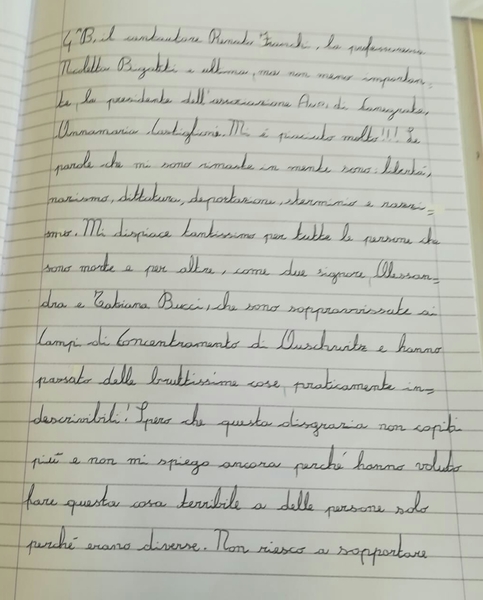 4ªB, il cantautore Renato Franchi, la professoressa
Nicoletta Bigatti e ultima, ma non meno importan=
te, la presidente dell'associazione Auser di Canegrate,
Annamaria Castiglioni. Mi è piaciuto molto!!! Le
parole che mi sono rimaste in mente sono: libertà,
nazismo, dittatura, deportazione, sterminio e razzi=
smo. Mi dispiace tantissimo per tutte le persone che
sono morte e per altre, come due signore, Alessan=
dra e Tatiana Bucci, che sono sopravvissute ai
Campi di Concentramento di Auschwitz e hanno
passato delle bruttissime cose, praticamente in=
descrivibili! Spero che questa disgrazia non capiti
più e non mi spiego ancora perché hanno voluto
fare questa cosa terribile a delle persone solo
perché erano diverse. Non riesco a sopportare